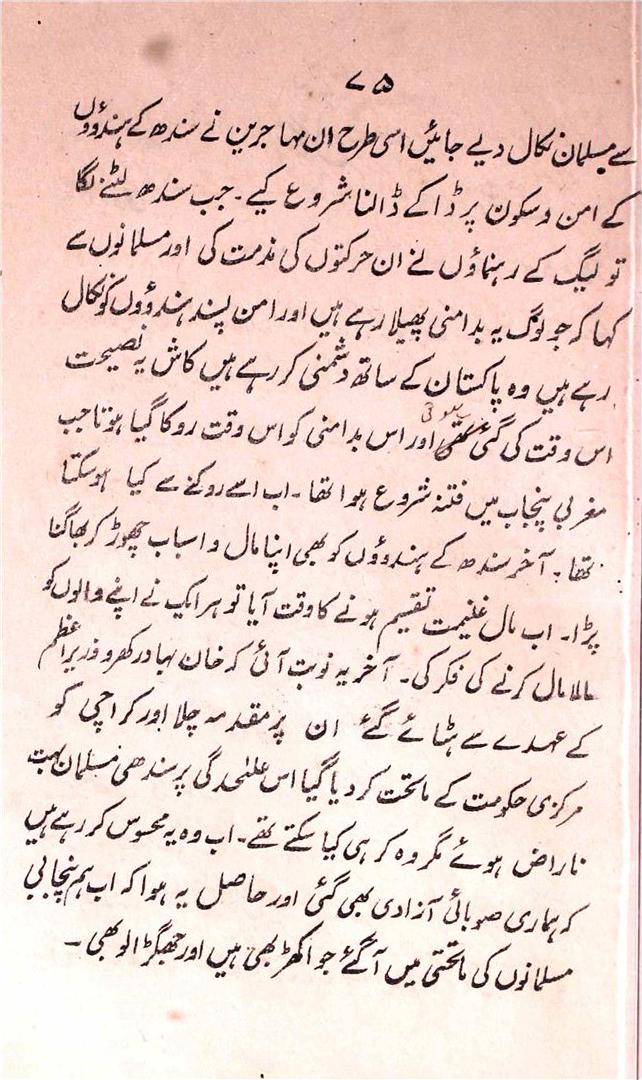 ۷۵
سے مسلمان نکال دیے جائیں اسی طرح ان مہاجرین نے سندھ کے ہندوؤں
کے امن و سکون پر ڈاکے ڈالنا شروع کیے۔ جب سندھ لٹنے لگا
تو لیگ کے رہنماؤں نے ان حرکتوں کی مذمت کی اور مسلمانوں سے
کہا کہ جو لوگ یہ بدامنی پھیلا رہے ہیں اور امن پسند ہندوؤں کو نکال
رہے ہیں وہ پاکستان کے ساتھ دشمنی کر رہے ہیں کاش یہ نصیحت
اس وقت کی گئی ہوتی اور اس بدامنی کو اس وقت روکا گیا ہوتا جب
مغربی پنجاب میں فتنہ شروع ہوا تھا۔ اب اسے روکنے سے کیا ہوسکتا
تھا۔ آخر سندھ کے ہندوؤں کو بھی اپنا مال و اسباب چھوڑ کر بھاگنا
پڑا۔ اب مال غنیمت تقسیم ہونے کا وقت آیا تو ہر ایک نے اپنے والوں کو
مالا مال کرنے کی فکر کی۔ آخر یہ نوبت آئی کہ خان بہادر کھرو وزیر اعظم
کے عہدے سے ہٹائے گئے ان پر مقدمہ چلا اور کراچی کو
مرکزی حکومت کے ماتحت کر دیا گیا اس علٰحدگی پر سندھی مسلمان بہت
ناراض ہوئے مگر وہ کر ہی کیا سکتے تھے۔ اب وہ یہ محسوس کر رہے ہیں
کہ ہماری صوبائی آزادی بھی گئی اور حاصل یہ ہوا کہ اب ہم پنجابی
مسلمانوں کی ماتحتی میں آ گئے جو اکھڑ بھی ہیں اور جھگڑالو بھی۔